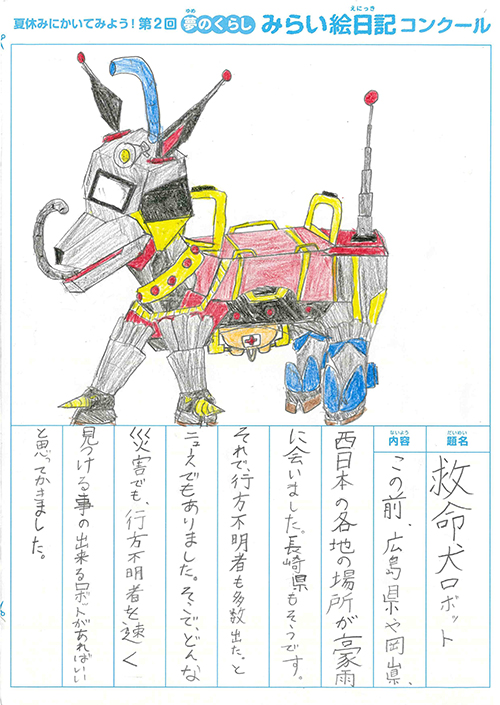 夏休みにかいてみよう!第2回 夢のくらし みらい絵日記コンクール
ゆめ
えにっき
題名
だいめい
救命犬ロボット
内容
ないよう
この前、広島県や岡山県、
西日本の各地の場所が豪雨
に会いました。長崎県もそうです。
それで、行方不明者も多数出た。と
ニュースでもありました。そこで、どんな
災害でも、行方不明者を速く
見つける事の出来るロボットがあればいい
と思ってかきました。